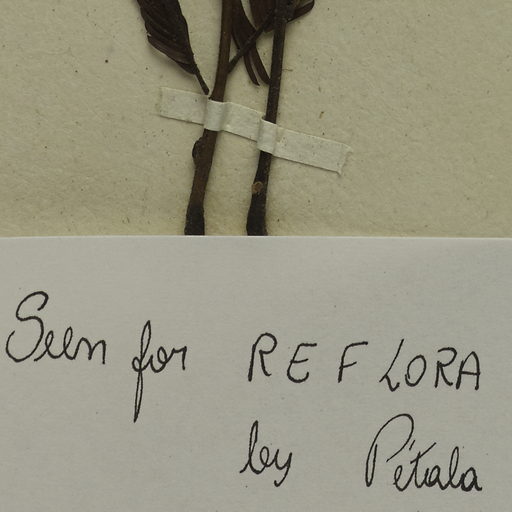 Seen for REFLORA
by Pétala